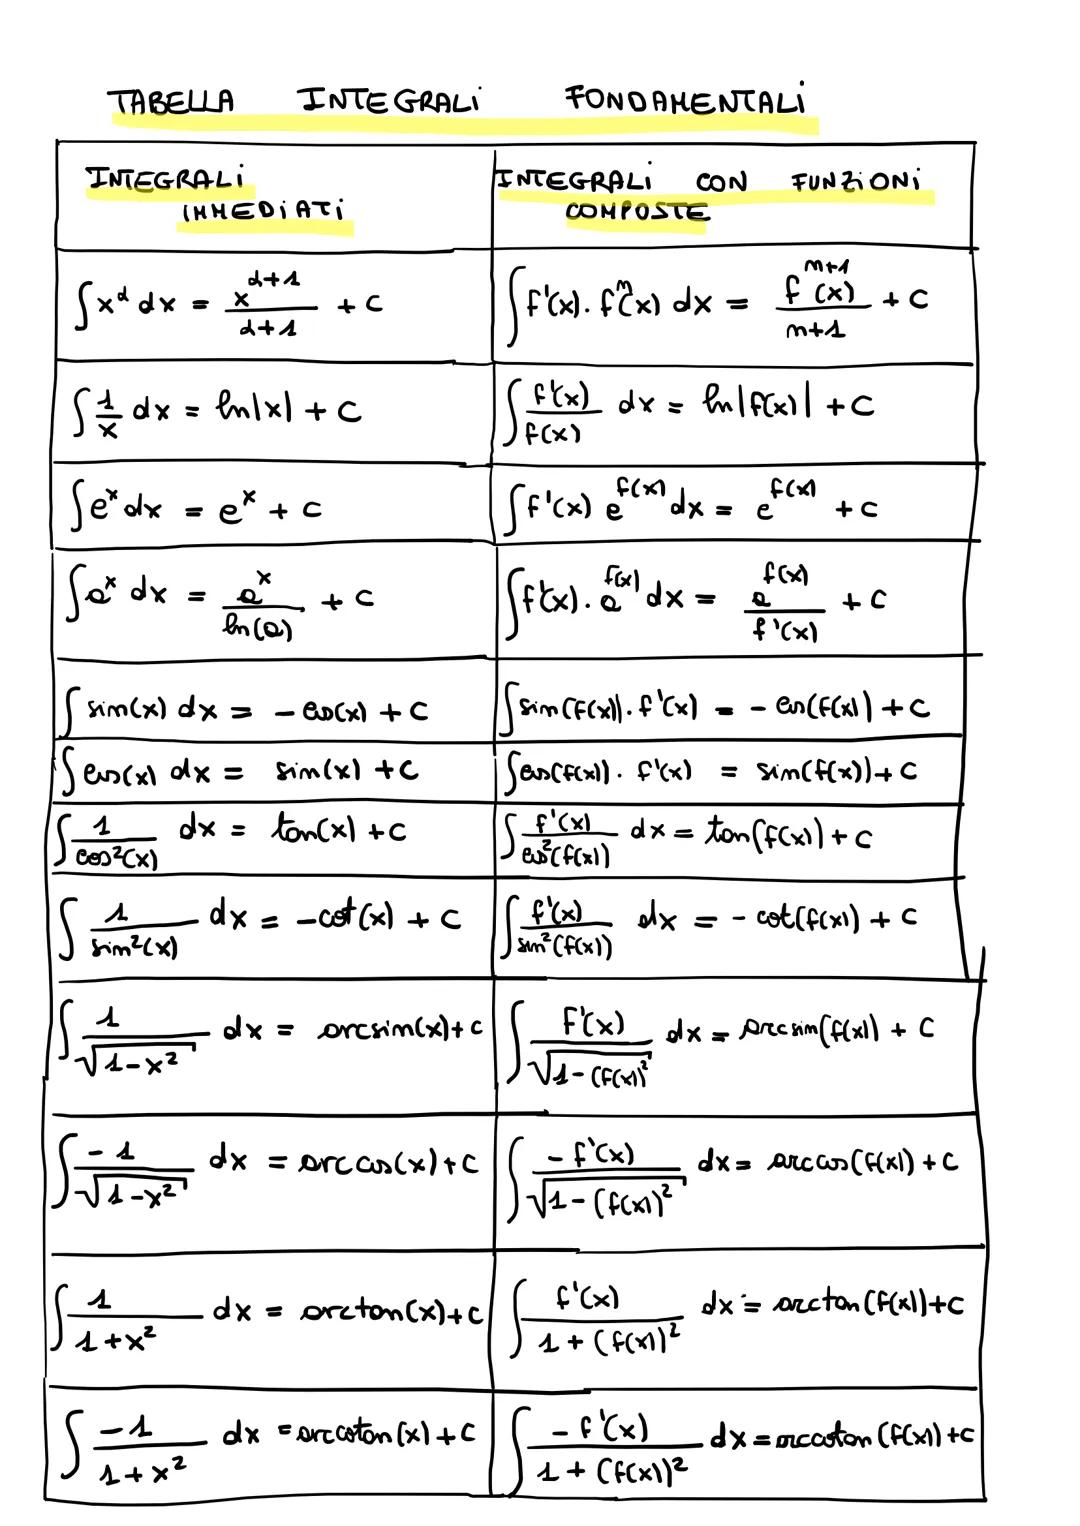 TABELLA INTEGRALI FONDAMENTALI
INTEGRALI IMMEDIATI
INTEGRALI CON FUNZIONI COMPOSTE
∫ x^α dx = x^(α+1)/(α+1) + C
∫ f'(x) · f^n(x) dx = f^(n+1)(x)/(n+1) + C
∫ 1/x dx = ln|x| + C
∫ f'(x)/f(x) dx = ln|f(x)| + C
∫ e^x dx = e^x + C
∫ f'(x) e^f(x) dx = e^f(x) + C
∫ a^x dx = a^x/ln(a) + C
∫ f'(x) · a^f(x) dx = a^f(x)/f'(x) + C
∫ sin(x) dx = - cos(x) + C
∫ sin(f(x)) · f'(x) = - cos(f(x)) + C
∫ cos(x) dx = sin(x) + C
∫ cos(f(x)) · f'(x) = sin(f(x)) + C
∫ 1/cos²(x) dx = tan(x) + C
∫ f'(x)/cos²(f(x)) dx = tan(f(x)) + C
∫ 1/sin²(x) dx = -cot(x) + C
∫ f'(x)/sin²(f(x)) dx = - cot(f(x)) + C
∫ 1/√(1-x²) dx = arcsin(x) + C
∫ f'(x)/√(1-(f(x))²) dx = arcsin(f(x)) + C
∫ -1/√(1-x²) dx = arccos(x) + C
∫ -f'(x)/√(1-(f(x))²) dx = arccos(f(x)) + C
∫ 1/(1+x²) dx = arctan(x) + C
∫ f'(x)/(1+(f(x))²) dx = arctan(f(x)) + C
∫ -1/(1+x²) dx = arccotan(x) + C
∫ -f'(x)/(1+(f(x))²) dx = arccotan(f(x)) + C